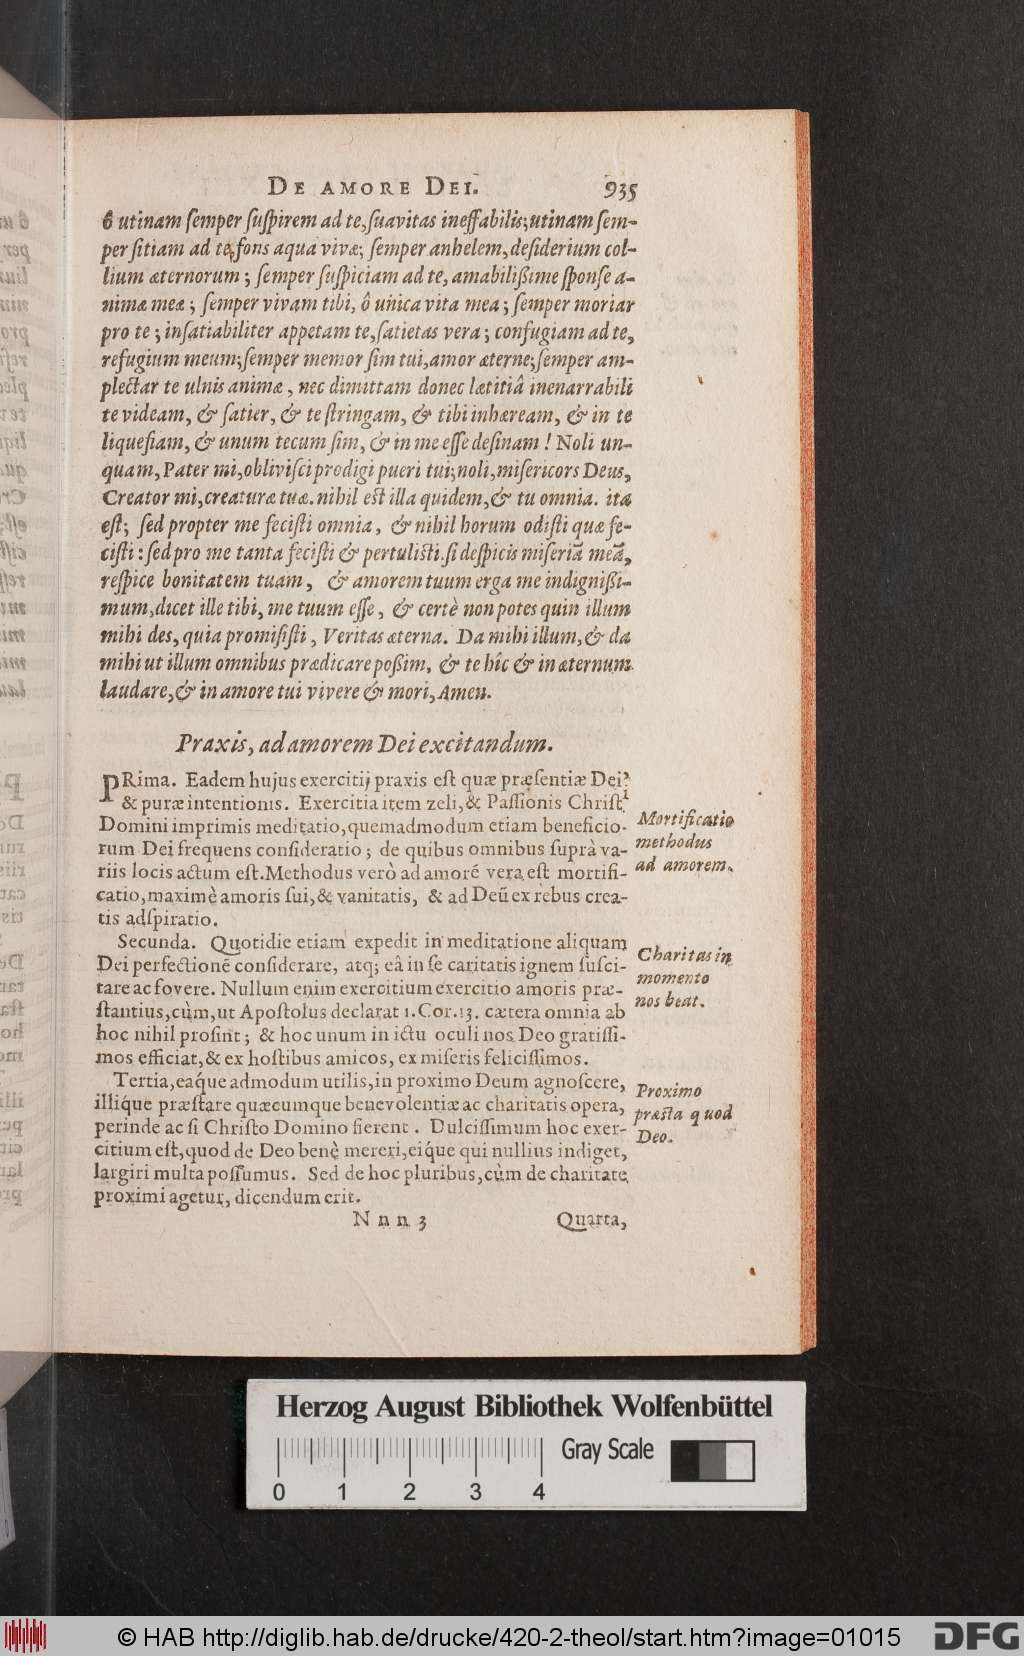 DE AMORE DEI. 935
ô utinam semper suspirem ad te, suavitas ineffabilis; utinam sem-
per sitiam ad te, fons aquæ vivæ; semper anhelem, desiderium col-
lium æternorum; semper suspiciam ad te, amabilißime sponse a-
nimæ meæ; semper vivam tibi, ô unica vita mea; semper moriar
pro te; insatiabiliter appetam te, satietas vera; confugiam ad te,
refugium meum; semper memor sim tui, amor æterne; semper am-
plectar te ulnis animæ, nec dimittam donec lætitiâ inenarrabili
te videam, & satier, & te stringam, & tibi inhæream, & in te
liquefiam, & unum tecum sim, & in me esse desinam! Noli un-
quam, Pater mi, oblivisci prodigi pueri tui; noli, misericors Deus,
Creator mi, creaturæ tuæ. nihil est illa quidem, & tu omnia. ita
est; sed propter me fecisti omnia, & nihil horum odisti quæ fe-
cisti: sed pro me tanta fecisti & pertulisti. si despicis miseriã meã,
respice bonitatem tuam, & amorem tuum erga me indignißi-
mum, dicet ille tibi, me tuum esse, & certè non potes quin illum
mihi des, quia promisisti, Veritas æterna. Da mihi illum, & da
mihi ut illum omnibus prædicare poßim, & te hîc & in æternum
laudare, & in amore tui vivere & mori, Amen.
Praxis, ad amorem Dei excitandum.
PRima. Eadem hujus exercitij praxis est quæ præsentiæ Dei,
& puræ intentionis. Exercitia item zeli, & Passionis Christi
Domini imprimis meditatio, quemadmodum etiam beneficio-
rum Dei frequens consideratio; de quibus omnibus suprà va-
riis locis actum est. Methodus verò ad amorẽ vera est mortifi-
catio, maximè amoris sui, & vanitatis, & ad Deũ ex rebus crea-
tis adspiratio.
Mortificatio
methodus
ad amorem.
Secunda. Quotidie etiam expedit in meditatione aliquam
Dei perfectionẽ considerare, atq; eâ in se caritatis ignem susci-
tare ac fovere. Nullum enim exercitium exercitio amoris præ-
stantius, cùm, ut Apostolus declarat 1. Cor. 13. cætera omnia ab
hoc nihil prosint; & hoc unum in ictu oculi nos Deo gratissi-
mos efficiat, & ex hostibus amicos, ex miseris felicissimos.
Charitas in
momento
nos beat.
Tertia, eáque admodum utilis, in proximo Deum agnoscere,
illíque præstare quæcumque benevolentiæ ac charitatis opera,
perinde ac si Christo Domino fierent. Dulcissimum hoc exer-
citium est, quod de Deo benè mereri, eíque qui nullius indiget,
largiri multa possumus. Sed de hoc pluribus, cùm de charitate
proximi agetur, dicendum erit.
Proximo
præsta quod
Deo.
Nnn 3 Quarta,
Herzog August Bibliothek Wolfenbüttel
Gray Scale
0 1 2 3 4
© HAB http://diglib.hab.de/drucke/420-2-theol/start.htm?image=01015
DFG